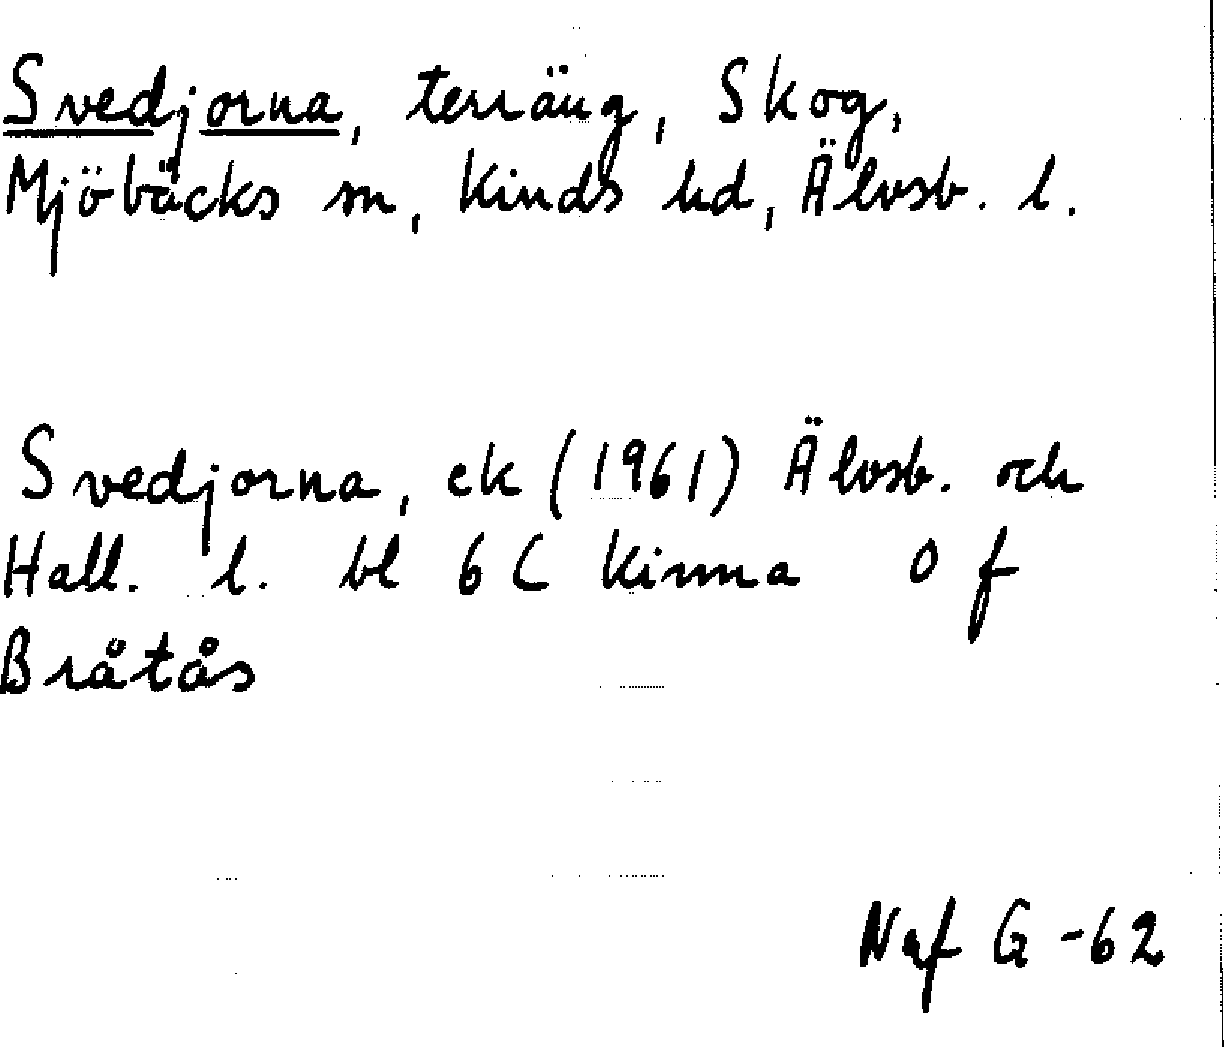 Svedjorna, terräng, Skog,
Mjöbäcks sn, Kinds hd, Älvsb. l.
Svedjorna, ek (1961) Älvsb. och
Hall. l. bl 6 C Kinna O f
Bråtås
Naf G -62